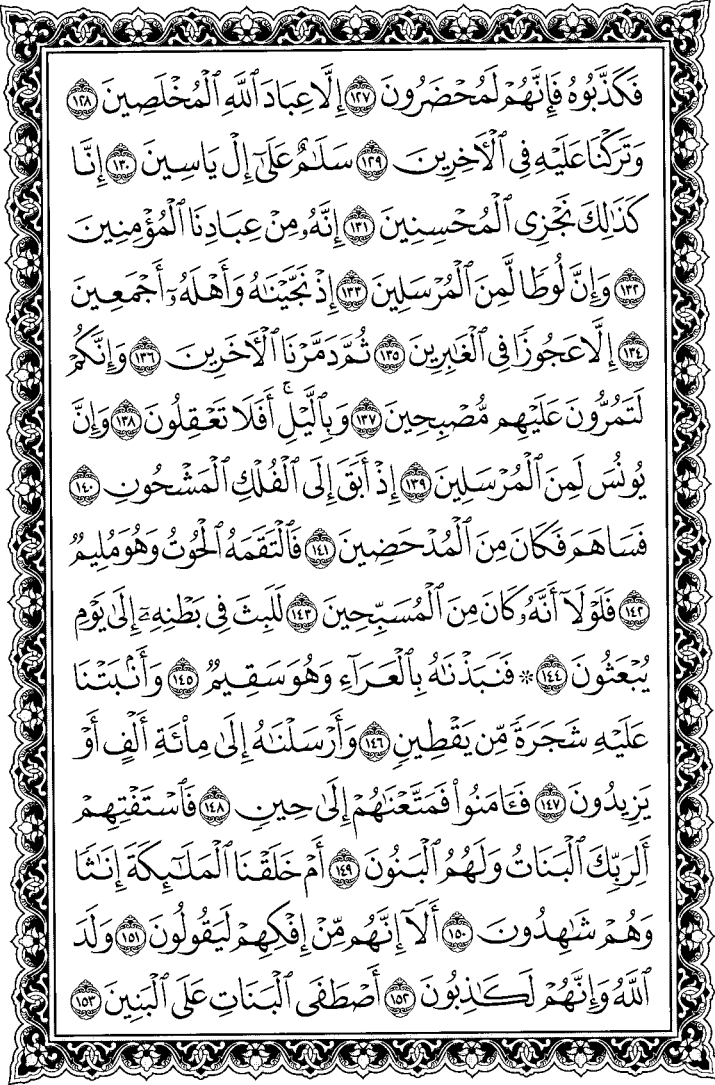 فَكَذَّبُوهُ فَإِنَّهُمْ لَمُحْضَرُونَ ١٢٧ إِلَّا عِبَادَ ٱللَّهِ ٱلْمُخْلَصِينَ ١٢٨
وَتَرَكْنَا عَلَيْهِ فِى ٱلْـَٔاخِرِينَ ١٢٩ سَلَـٰمٌ عَلَىٰٓ إِلْ يَاسِينَ ١٣٠ إِنَّا
كَذَٰلِكَ نَجْزِى ٱلْمُحْسِنِينَ ١٣١ إِنَّهُۥ مِنْ عِبَادِنَا ٱلْمُؤْمِنِينَ
١٣٢ وَإِنَّ لُوطًا لَّمِنَ ٱلْمُرْسَلِينَ ١٣٣ إِذْ نَجَّيْنَـٰهُ وَأَهْلَهُۥٓ أَجْمَعِينَ
١٣٤ إِلَّا عَجُوزًا فِى ٱلْغَـٰبِرِينَ ١٣٥ ثُمَّ دَمَّرْنَا ٱلْـَٔاخَرِينَ ١٣٦ وَإِنَّكُمْ
لَتَمُرُّونَ عَلَيْهِم مُّصْبِحِينَ ١٣٧ وَبِٱلَّيْلِ ۗ أَفَلَا تَعْقِلُونَ ١٣٨ وَإِنَّ
يُونُسَ لَمِنَ ٱلْمُرْسَلِينَ ١٣٩ إِذْ أَبَقَ إِلَى ٱلْفُلْكِ ٱلْمَشْحُونِ ١٤٠
فَسَاهَمَ فَكَانَ مِنَ ٱلْمُدْحَضِينَ ١٤١ فَٱلْتَقَمَهُ ٱلْحُوتُ وَهُوَ مُلِيمٌ
١٤٢ فَلَوْلَآ أَنَّهُۥ كَانَ مِنَ ٱلْمُسَبِّحِينَ ١٤٣ لَلَبِثَ فِى بَطْنِهِۦٓ إِلَىٰ يَوْمِ
يُبْعَثُونَ ١٤٤ * فَنَبَذْنَـٰهُ بِٱلْعَرَآءِ وَهُوَ سَقِيمٌ ١٤٥ وَأَنۢبَتْنَا
عَلَيْهِ شَجَرَةً مِّن يَقْطِينٍ ١٤٦ وَأَرْسَلْنَـٰهُ إِلَىٰ مِا۟ئَةِ أَلْفٍ أَوْ
يَزِيدُونَ ١٤٧ فَـَٔامَنُوا۟ فَمَتَّعْنَـٰهُمْ إِلَىٰ حِينٍ ١٤٨ فَٱسْتَفْتِهِمْ
أَلِرَبِّكَ ٱلْبَنَاتُ وَلَهُمُ ٱلْبَنُونَ ١٤٩ أَمْ خَلَقْنَا ٱلْمَلَـٰٓئِكَةَ إِنَـٰثًا
وَهُمْ شَـٰهِدُونَ ١٥٠ أَلَآ إِنَّهُم مِّنْ إِفْكِهِمْ لَيَقُولُونَ ١٥١ وَلَدَ
ٱللَّهُ وَإِنَّهُمْ لَكَـٰذِبُونَ ١٥٢ أَصْطَفَى ٱلْبَنَاتِ عَلَى ٱلْبَنِينَ ١٥٣